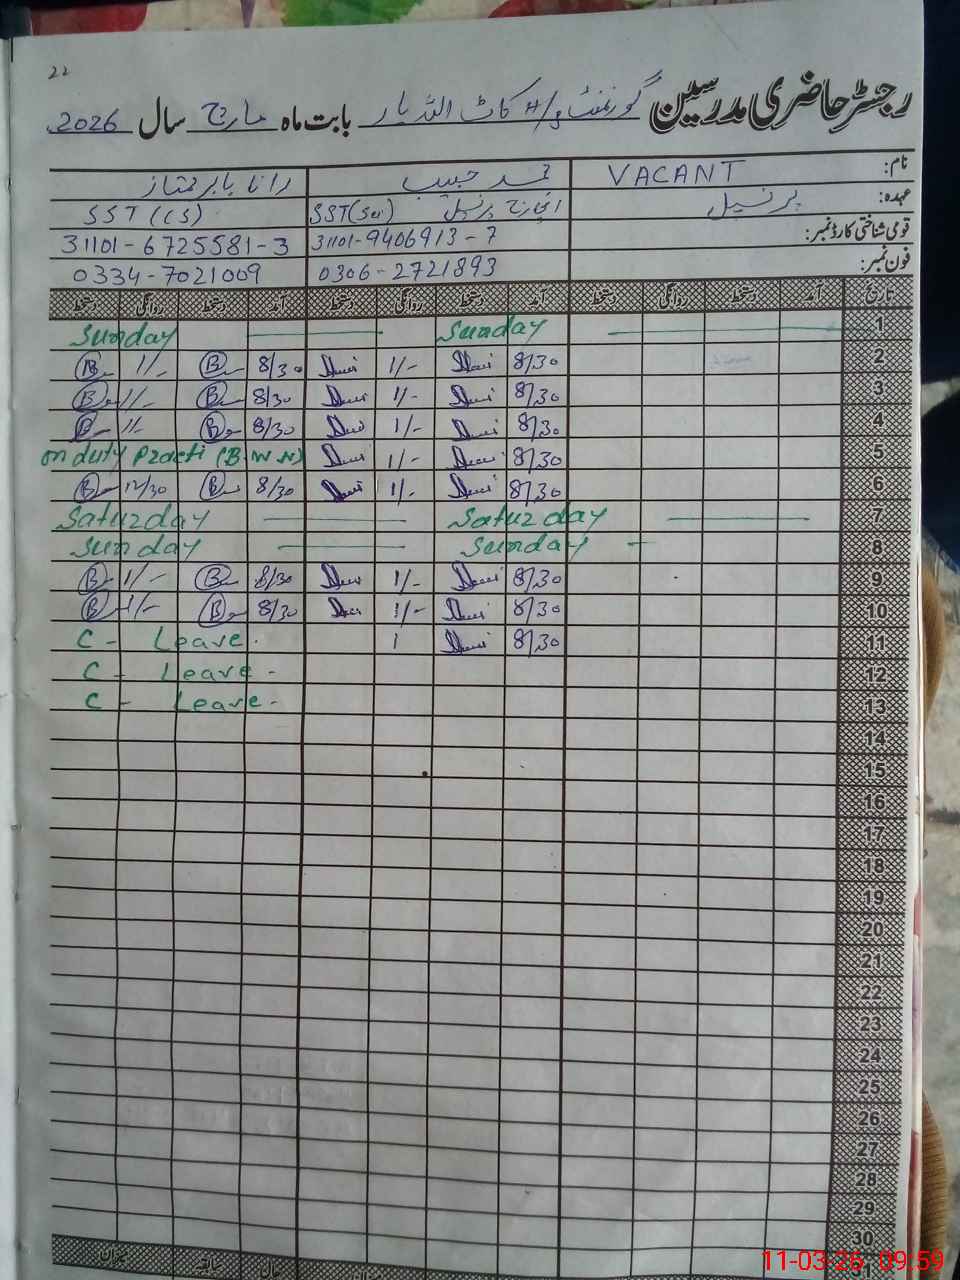 22
رجسٹر حاضری مدرسین گورنمنٹ H/ کاٹ اللہ یار بابت ماہ مارچ سال 2026
نام: VACANT محمد حبیب رانا بابر ممتاز
عہدہ: پرنسپل انچارج پرنسپل SST(Sci) SST (CS)
قومی شناختی کارڈ نمبر: 31101-9406913-7 31101-6725581-3
فون نمبر: 0306-2721893 0334-7021009
تاریخ آمد دستخط روانگی دستخط آمد دستخط روانگی دستخط آمد دستخط روانگی دستخط
1 Sunday Sunday
2 8/30 1/- 8/30 1/-
3 8/30 1/- 8/30 1/-
4 8/30 1/- 8/30 1/-
5 8/30 1/- on duty Practi (B W N)
6 8/30 1/- 8/30 12/30
7 Saturday Saturday
8 Sunday Sunday
9 8/30 1/- 8/30 1/-
10 8/30 1/- 8/30 1/-
11 8/30 1 C - Leave.
12 C - Leave -
13 C - Leave -
14
15
16
17
18
19
20
21
22
23
24
25
26
27
28
29
30
31
میزان:
11-03-26 09:59